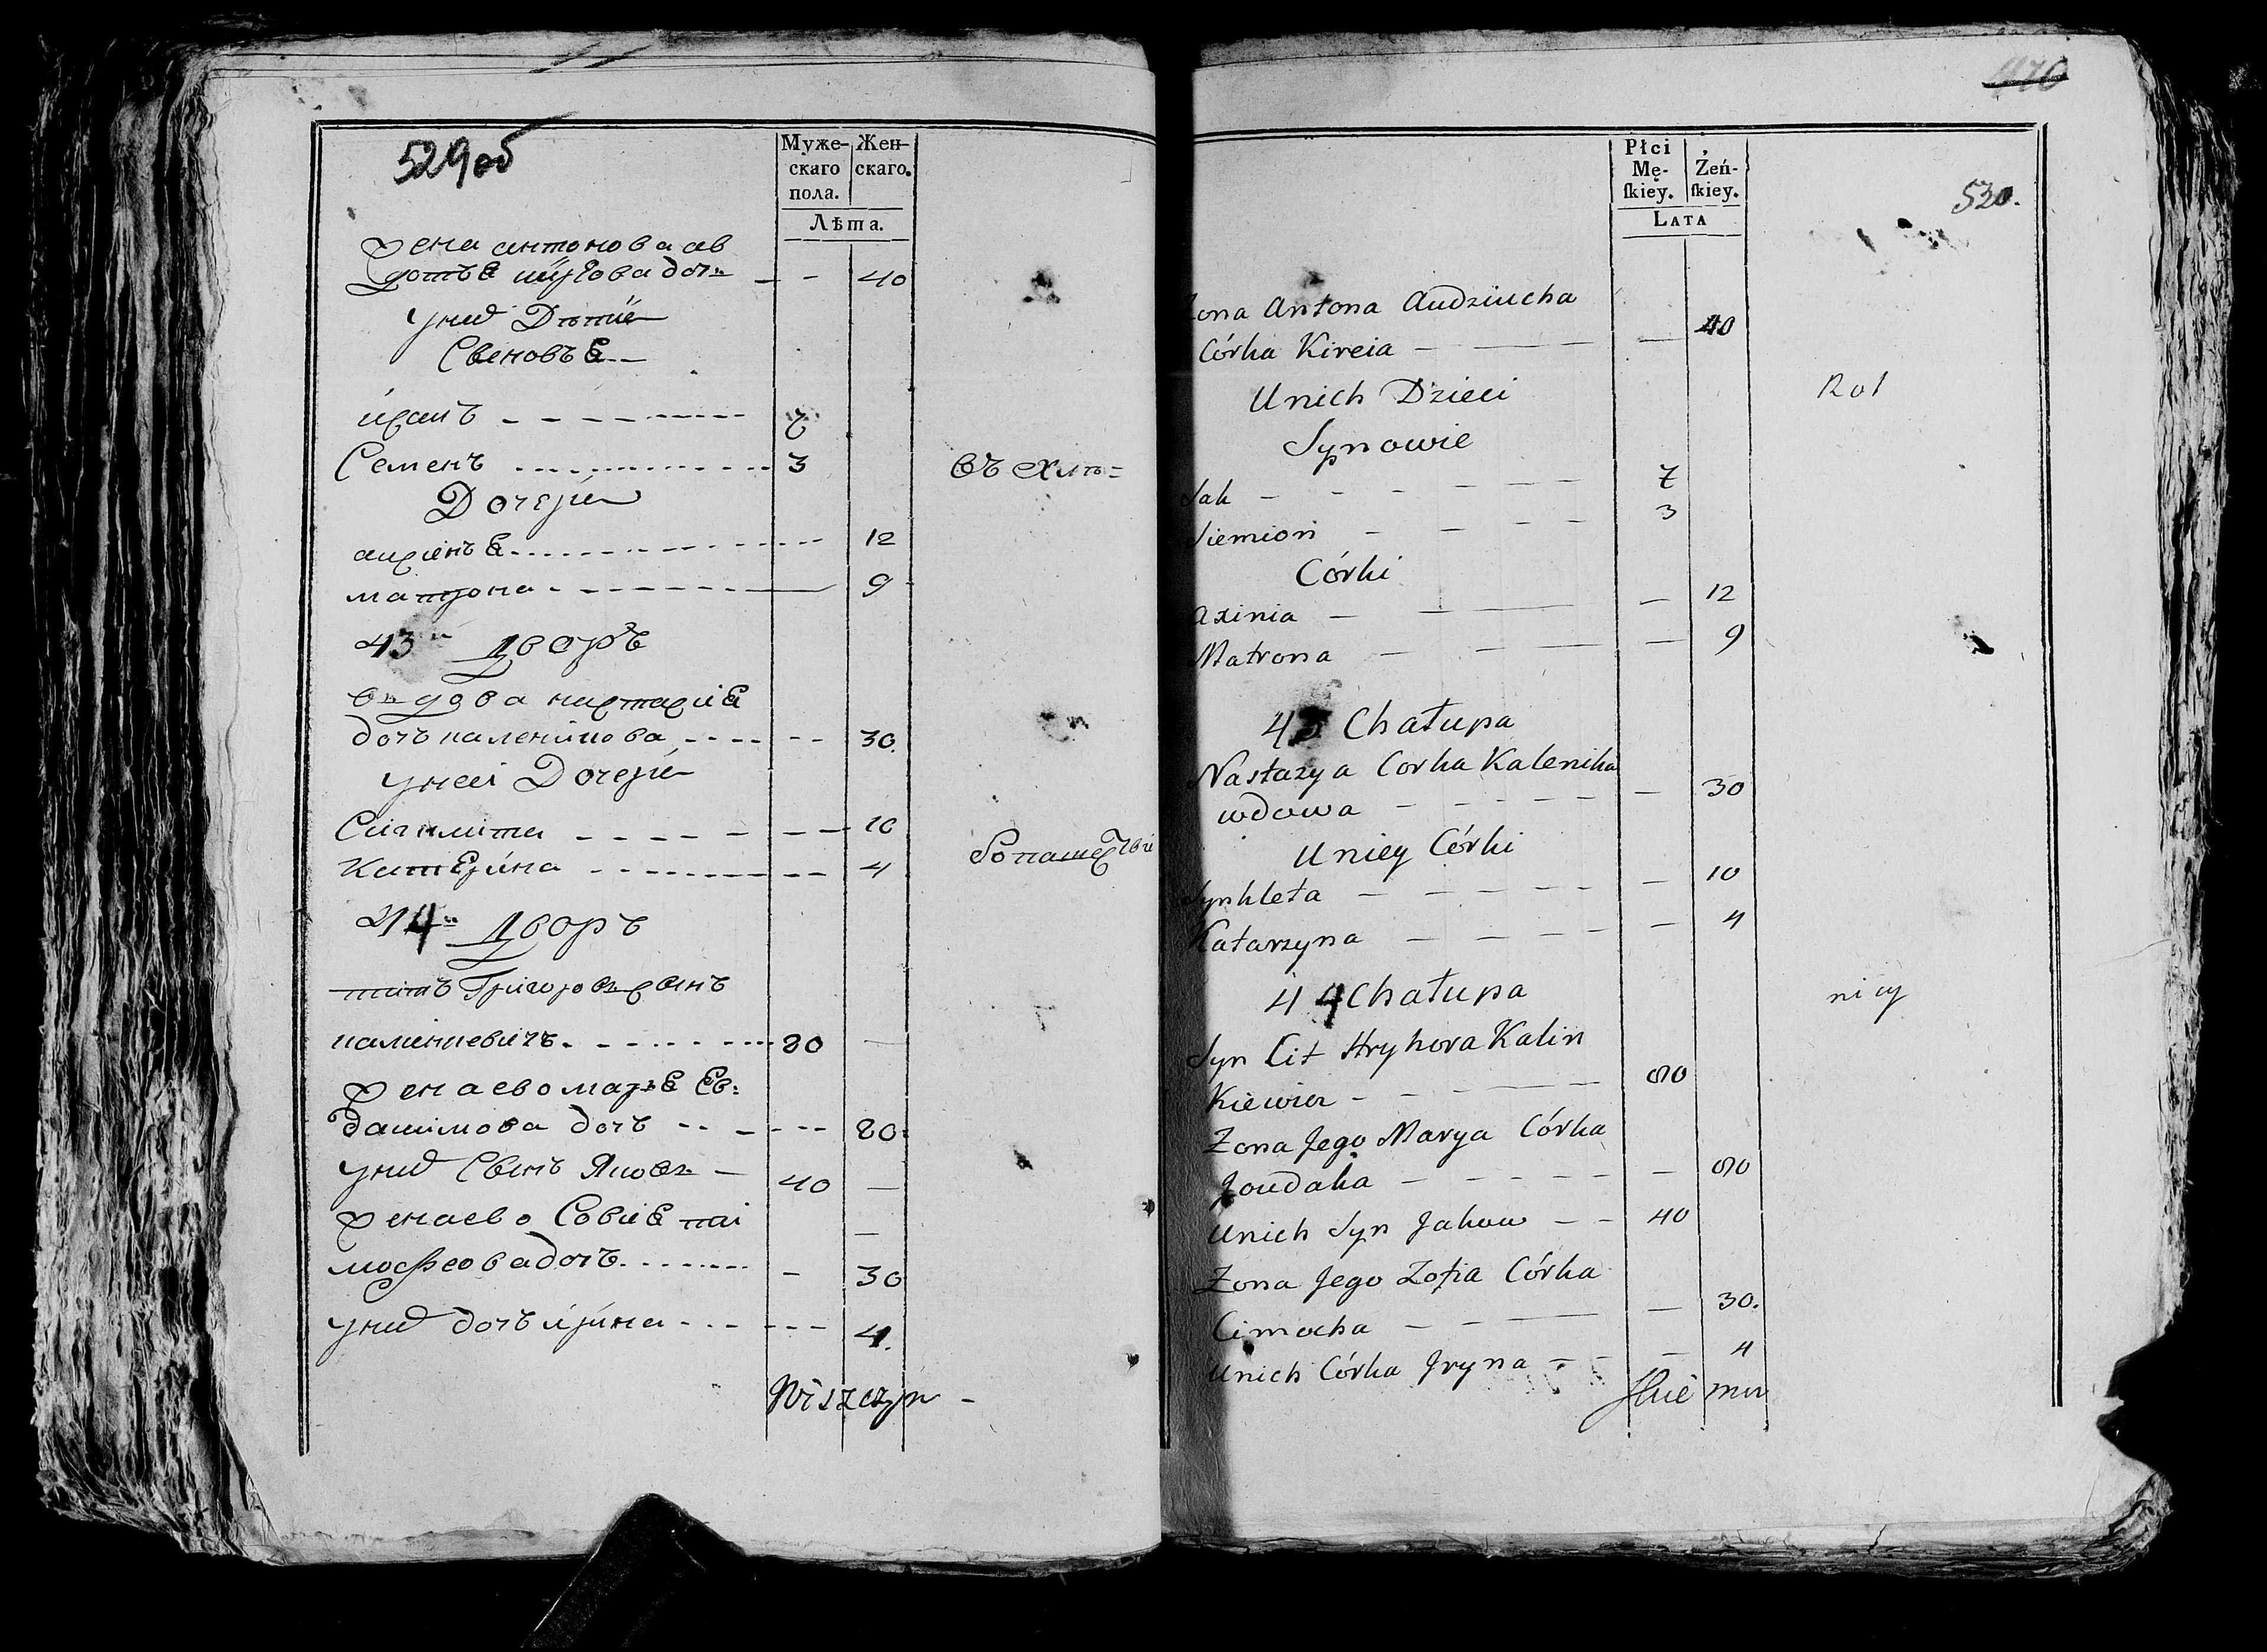 529об
Муже-
скаго
пола.
Жен-
скаго.
Лѣта.
жена антонова ав
дотья кирѣова дочь — - 40
унихъ Дѣти
Сыновья
исакъ 7
Семенъ 3
въ хлѣ=
Дочери
аксинья 12
матрона 9
43й Дворъ
вдова настасия
дочь каленикова 30.
унеи Дочери
Сигклита 10
Катерина 4
44й Дворъ
титъ Григоровъ сынъ
калинкевичъ 80 —
жена ево марья Ев:
дакимова дочь 80.
унихъ Сынъ Яковъ — 40 —
жена ево Совия ти
мофеова дочь - 30
унихъ дочь ирина 4.
Wiszczyn -
470
530.
Płci
Mę-
skiey.
Żeń-
skiey.
LATA
Zona Antona Audziucha
Córka Kireia — 40
Unich Dzieci
Rol
Synowie
Isak 7
Siemion 3
Córki
Axinia — 12
Matrona — 9
43 Chałupa
Nastazya Corka Kalenika
wdowa — 30
Uniey Córki
Synkleta — 10
Katarzyna — 4
44 Chałupa
nicy
Syn Cit Hryhora Kalin
Kiewicz 80
Zona Jego Marya Córka
Joudaka — 80
Unich Syn Jakow 40
Zona Jego Zofia Córka
Cimocha — 30.
Unich Córka Jryna — 4